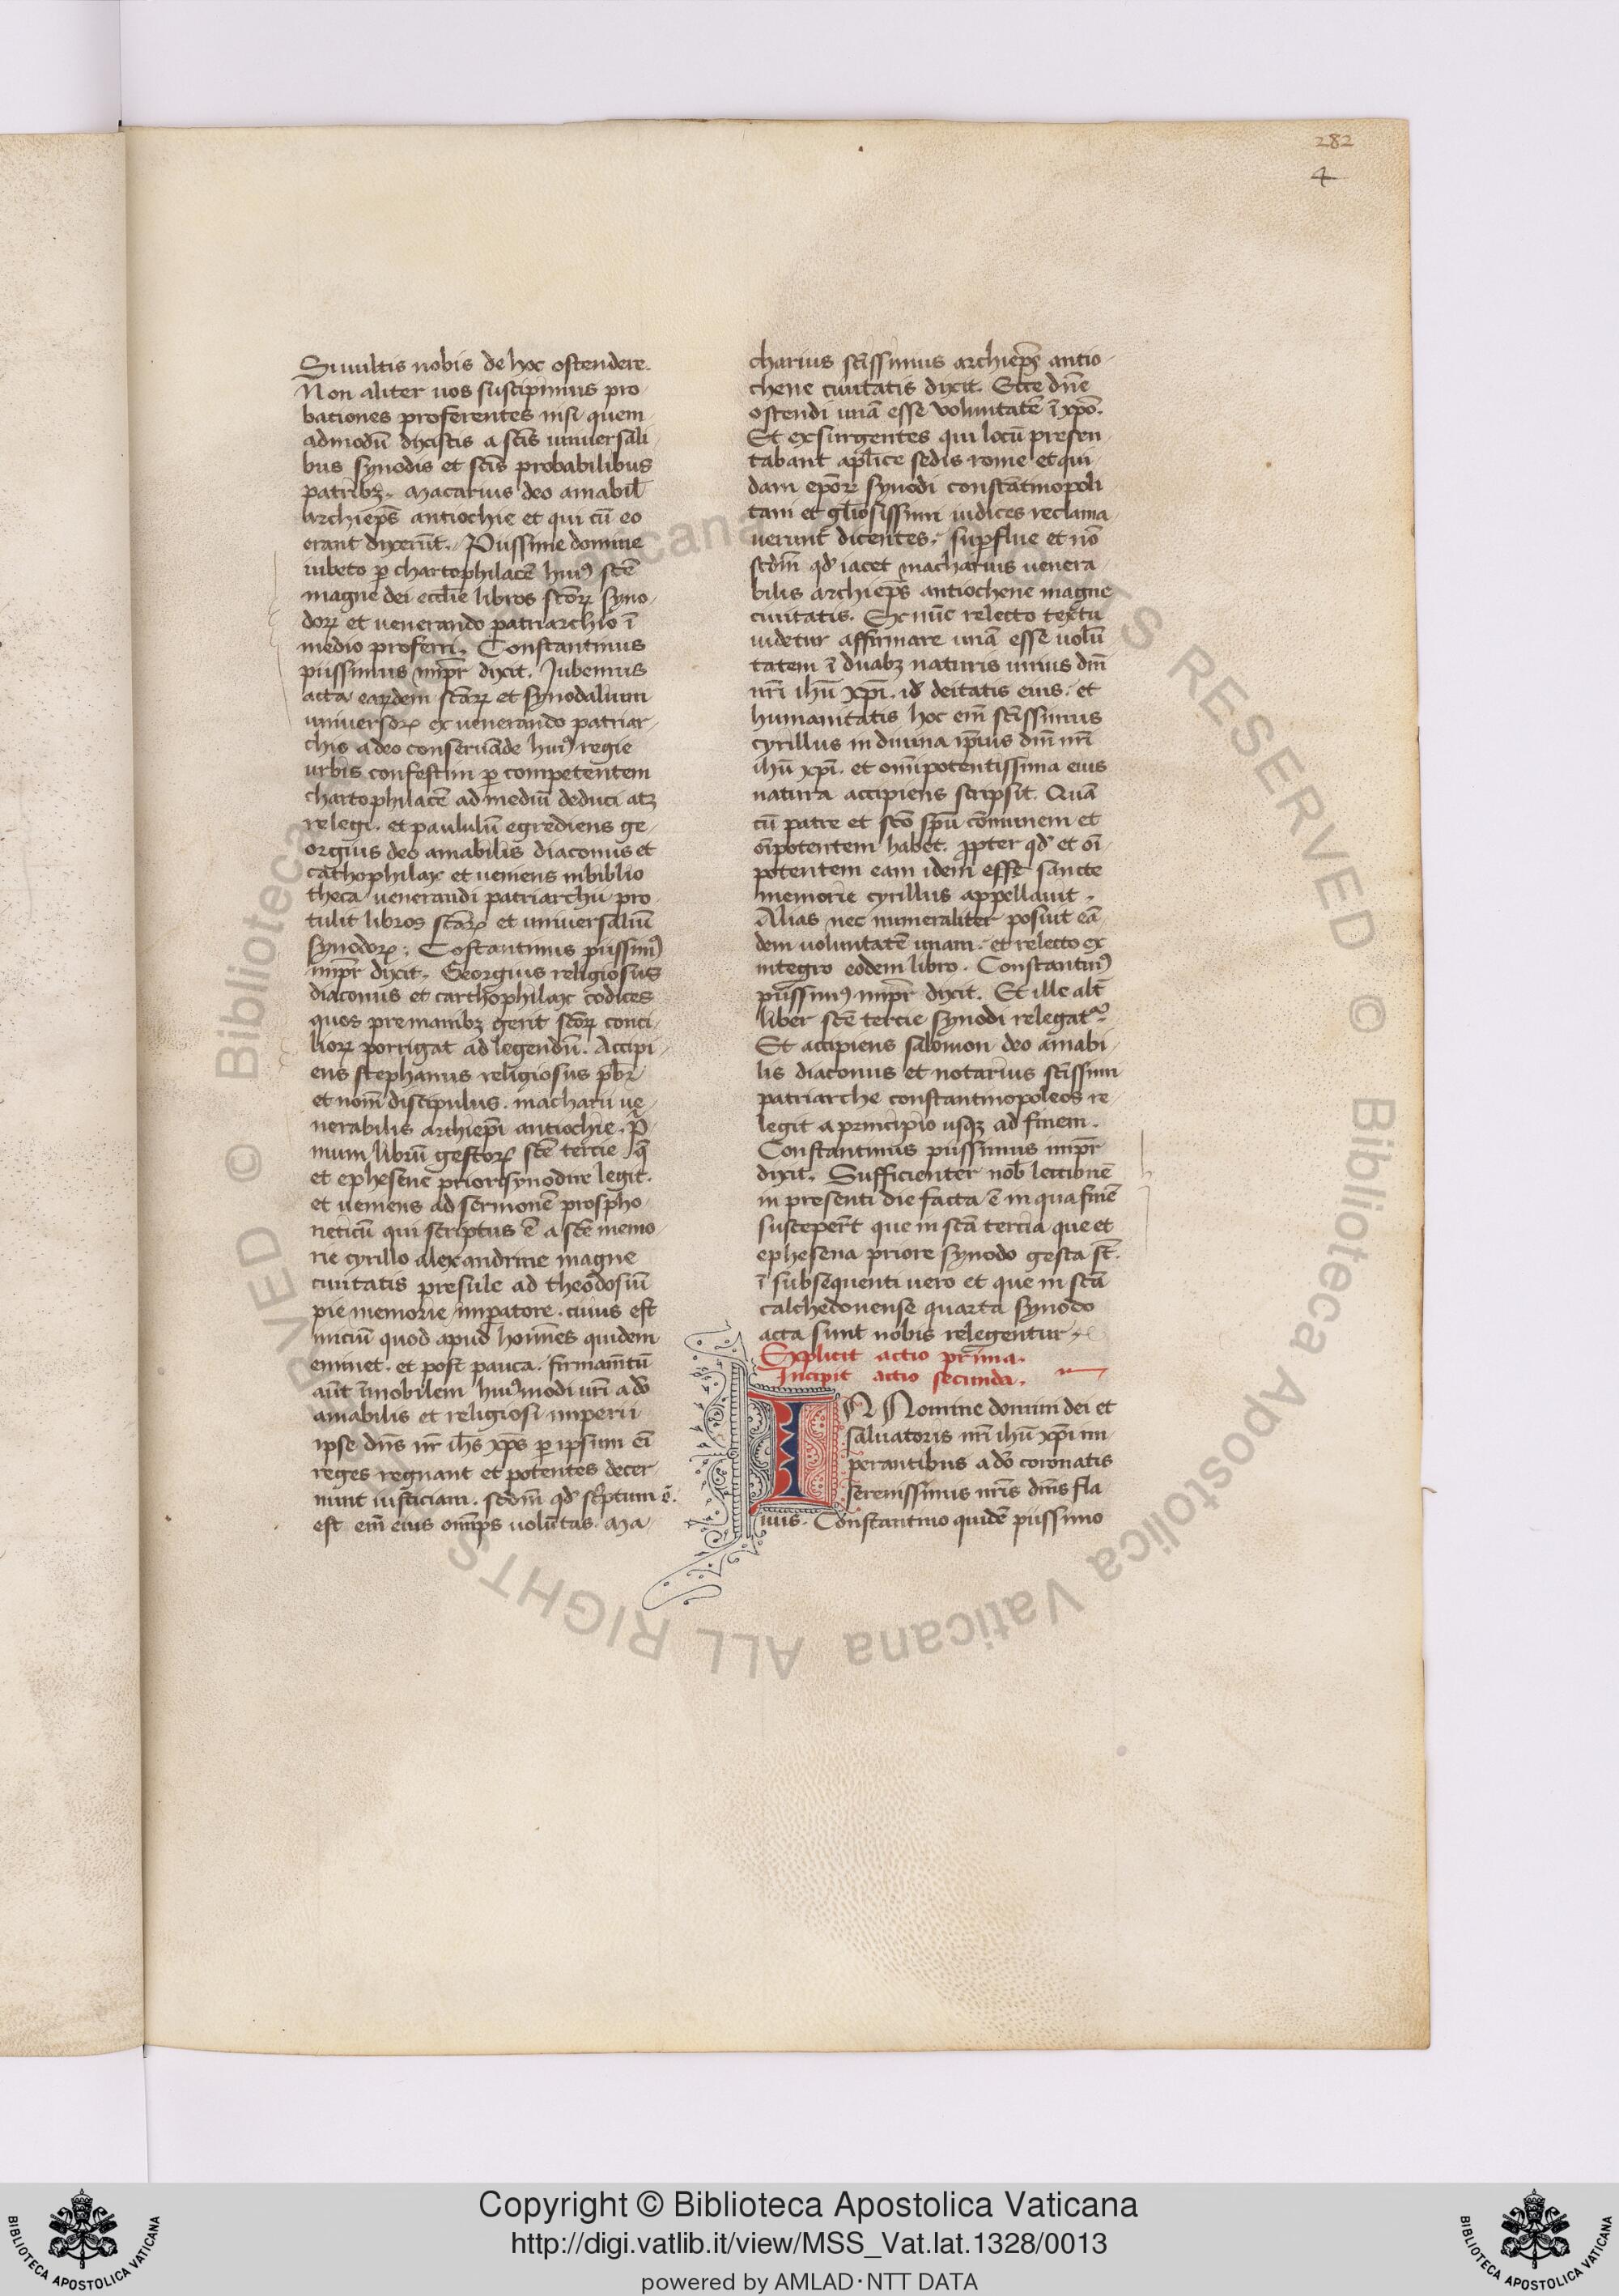 282
4
Si uultis nobis de hoc ostendere.
Non aliter uos suscipimus pro-
bationes proferentes nisi quem-
admodū dixistis a sc̄is uniuersali
bus synodis et sc̄is probabilibus
patribꝫ. Macarius deo amabil̄
archiep̄s antiochie et qui cū eo
erant dixerūt. Piissime domine
iubeto ꝑ chartophilacē huiꝰ sc̄e
magne dei eccl̄ie libros sc̄oꝝ syno-
doꝝ et uenerando patriarchio ī
medio proferri. Constantinus
piissimus imp̄r dixit. Jubemus
acta eaꝝdem sc̄aꝝ et synodalium
uniuersoꝝ ex uenerando patriar-
chis a deo conseruāde huiꝰ regie
urbis confestim ꝑ competentem
chartophilacē ad mediū deduci atꝫ
relegi. et paululū egrediens ge-
orgius deo amabilis diaconus et
cathophilax et ueniens in biblio
theca uenerandi patriarchii pro-
tulit libros sc̄aꝝ et uniuersaliū
synodoꝝ: Costantinus piissimꝰ
imp̄r dixit. Georgius religiosus
diaconus et carthophilax codices
quos pre manibꝫ gerit sc̄oꝝ conci-
lioꝝ porrigat ad legendū. Accipi-
ens stephanus religiosus p̄br̄
et nom̄ discipulus. macharii ue-
nerabilis archiep̄i antiochie. p̄
mum librū gestoꝝ sc̄e tercie q̄
et ephesene prior synodire legit.
et ueniens ad sermonē prospho-
neticū qui scriptus ē a sc̄e memo-
rie cyrillo alexandrine magne
ciuitatis presule ad theodosiū
pie memorie imperatore. cuius est
iniciū quod apud homines quidem
eminet. et post pauca. firmam̄tū
aūt īmobilem huiꝰmodi ur̄i a dō
amabilis et religiosi imperii
ipse dn̄s nr̄ ih̄s xp̄s ꝑ ipsum eī
reges regnant et potentes decer-
nunt iusticiam. sc̄dm̄ qd̄ sc̄ptum ē.
est em̄ eius omp̄s uolūtas. Ma-
charius sc̄issimus archiep̄s antio-
chene ciuitatis dixit. Ecce dn̄e
ostendi unā esse voluntatē ī xp̄o.
Et exsurgentes qui locū presen-
tabant ap̄lice sedis rome et qui-
dam ep̄ore synodi constātinopoli
tani et gl̄iosissimi iudices reclama-
uerunt dicentes. supflue et nō
sc̄dm̄ qd̄ iacet macharius uenera-
bilis archiep̄s antiochene magne
ciuitatis. Ex nūc relecto textu
uidetur affirmare unā esse uolū
tatem ī duabꝫ naturis unius dn̄i
nr̄i ihū xp̄i. id̄ deitatis eius. et
humanitatis hoc em̄ sc̄issimus
cyrillus in diuina ip̄ius dn̄i nr̄i
ihū xp̄i. et omīpotentissima eius
natura accipiens scripsit. Quā
cū patre et sc̄o sp̄u cōmunem et
oīpotentem habet. ꝓpter qd̄ et oī-
potentem eam idem esse sancte
memorie cyrillus appellauit.
Alias nec numeraliter posuit eā-
dem uoluntatē unam. et relecto ex
integro eodem libro. Constantinꝰ
piissimꝰ imp̄r dixit. Et ille alt̄
liber sc̄e tercie synodi relegat̄.
Et accipiens salomon deo amabi-
lis diaconus et notarius sc̄issimi
patriarche constantinopoleos re
legit a principio usqꝫ ad finem.
Constantinus piissimus imp̄r
dixit. Sufficienter nob̄ lectionē
in presenti die facta ē in qua finē
suscepert̄ que in sc̄a tercia que et
ephesena priore synodo gesta st̄.
ī subsequenti uero et que in sc̄a
calchedonense quarta synodo
acta sunt nobis relegentur.
Explicit actio prima.
Incipit actio secunda.
IN Nomine domini dei et
saluatoris nr̄i ihū xp̄i im
perantibus a dō coronatis
serenissimus nr̄is dn̄is fla
uus. Constantino quidē piissimo
© Biblioteca Apostolica Vaticana ALL RIGHTS RESERVED © Biblioteca Apostolica Vaticana ALL RIGHTS RESERVED
Copyright © Biblioteca Apostolica Vaticana
http://digi.vatlib.it/view/MSS_Vat.lat.1328/0013
powered by AMLAD·NTT DATA
BIBLIOTECA APOSTOLICA VATICANA
BIBLIOTECA APOSTOLICA VATICANA